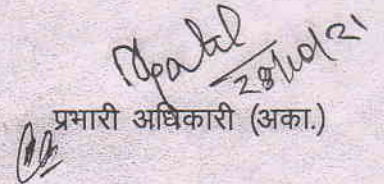 28/10/21
प्रभारी अधिकारी (अका.)